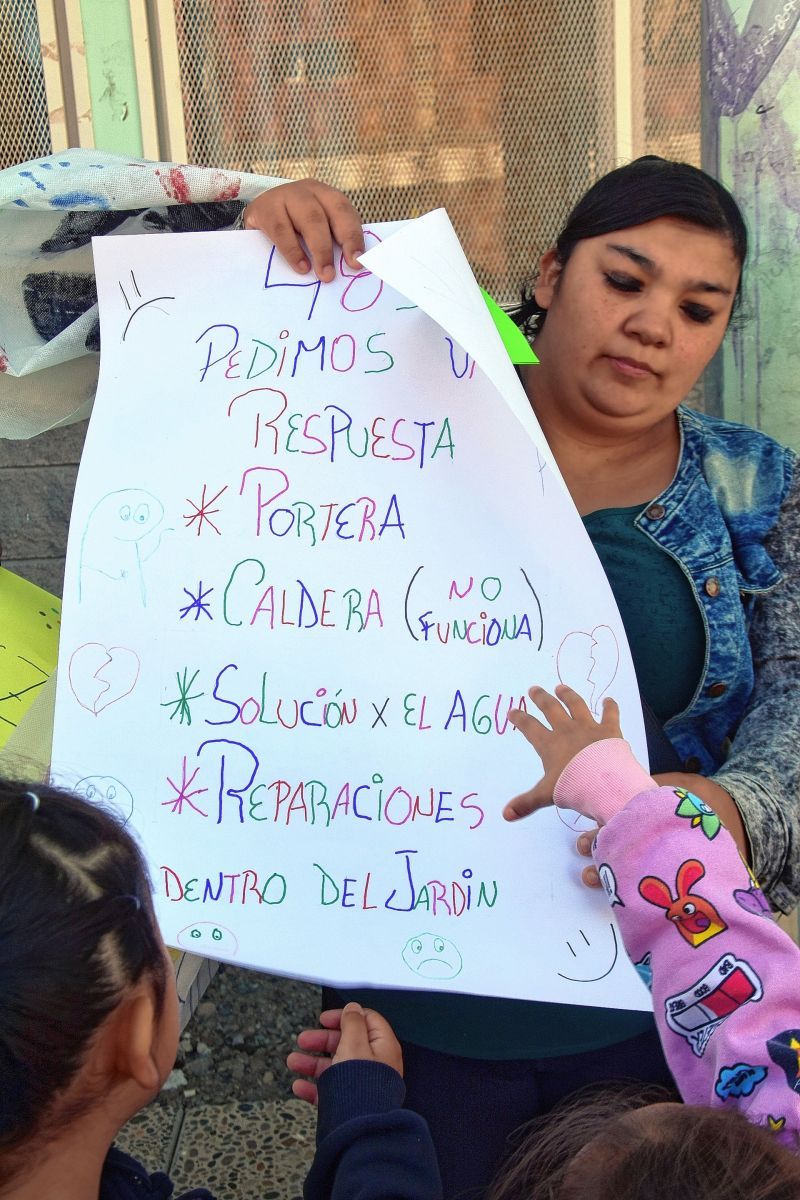 48
PEDIMOS
RESPUESTA
* PORTERA
* CALDERA (NO FUNCIONA)
* SOLUCIÓN X EL AGUA
* REPARACIONES
DENTRO DEL JARDIN